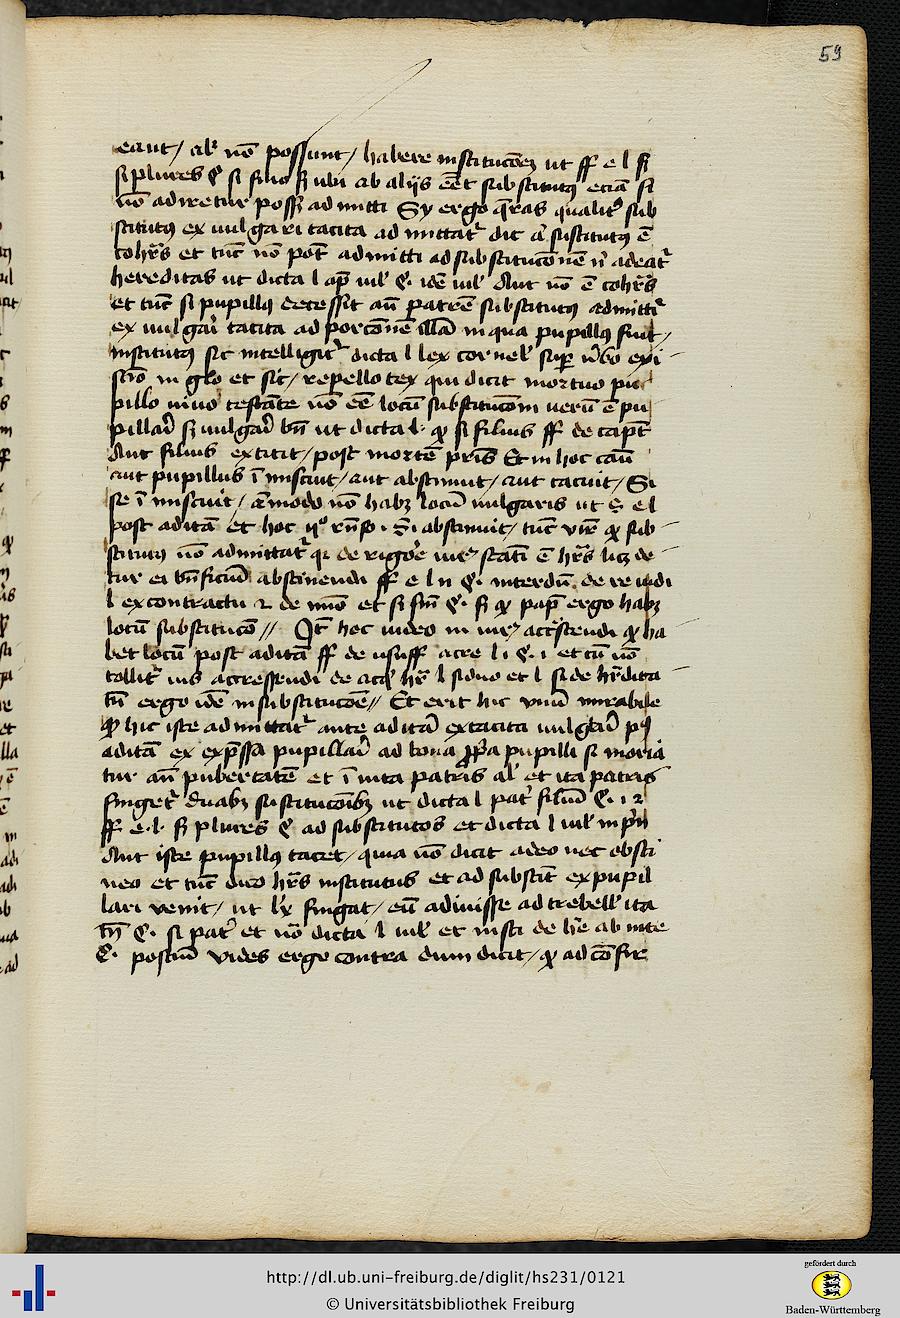 59
eant / al' nō possunt / habere institucōēȝ ut ff e l si
si plures § si filio si ubi ab aliis eēt substitutꝯ eciā si
nō adiretur poss admitti Sy ergo q̄ras qualit' sub
stitutꝯ ex uulgari tacita admittat' dic
cohꝭs et tūc nō pōt admitti ad substitucōnē nˡ adeat'
hereditas ut dicta l ap̄ iul' §. idē iul' Aut nō ē cohꝭs
et tūc si pupillꝯ decessit an̄ patrē substitutꝯ admittit'
ex uulgari tacita ad porcōnē illā in qua pupillꝯ fuit /
institutꝯ sic intelligit' dicta l lex cornel' sup̄ ubo exi
scīo in glo et sic / repello tex qui dicit mortuo pu
pillo uiuo testāte nō eē locū substitucōni uerū ē pu
pillari sȝ uulgari bn̄ ut dicta l. ꝙ si filius ff de capt
Aut filius extitit / post mortē pris Et in hoc cāu
aut pupillus ī miscuit / aut abstinuit / aut tacuit / Si
se ī miscuit / āmodo nō habȝ locū uulgaris ut s̄ e l
post aditā et hoc Si abstinuit / tūc vīr ꝙ sub
stitutꝯ nō admittat' qꝛ de rigore iurꝭ statī ē hꝭs licȝ de
tur ei bn̄ficiū abstinendi ff e l n §. interdū de re iudi
l ex contractu 2 de mīo et si §. si ꝙ pap̄ ergo habȝ
locū substitucō // It̄ hoc uideo in iurꝭ accrescendi ꝙ ha
bet locū post aditā ff de usuff acre l i §. i et tn̄ nō
tollit' ius accrescendi de acq̄ hꝭ l si duo et l si de hꝭdita
tn̄ ergo idē in substitucōe // Et erit hic unū mirabile
ꝙ hic iste admittat' ante aditā ex tacita uulgari pꝯ
aditā ex exp̄ssa pupillari ad bona ꝓpa pupilli si moria
tur an̄ pubertatē et ī uita patris al' et ita patris
fungeret' duabꝯ sustitucōibꝯ ut dicta l pat' filiū §. i 2
ff e. l. si plures § ad substitutos et dicta l iul' in pn̄
Aut iste pupillꝯ tacet / quia nō dicit adeo nec absti
neo et tūc dico hꝭs institutus et ad substit ex pupil
lari venit / ut lex fingat / eū adiuisse ad trebell' ita
tn̄ §. si pat' et nō dicta l iul' et insti de hꝭe ab inte
§. postm̄ vides ergo contra dum dicit / ꝙ ad cōfir
http://dl.ub.uni-freiburg.de/diglit/hs231/0121
© Universitätsbibliothek Freiburg
gefördert durch
Baden-Württemberg